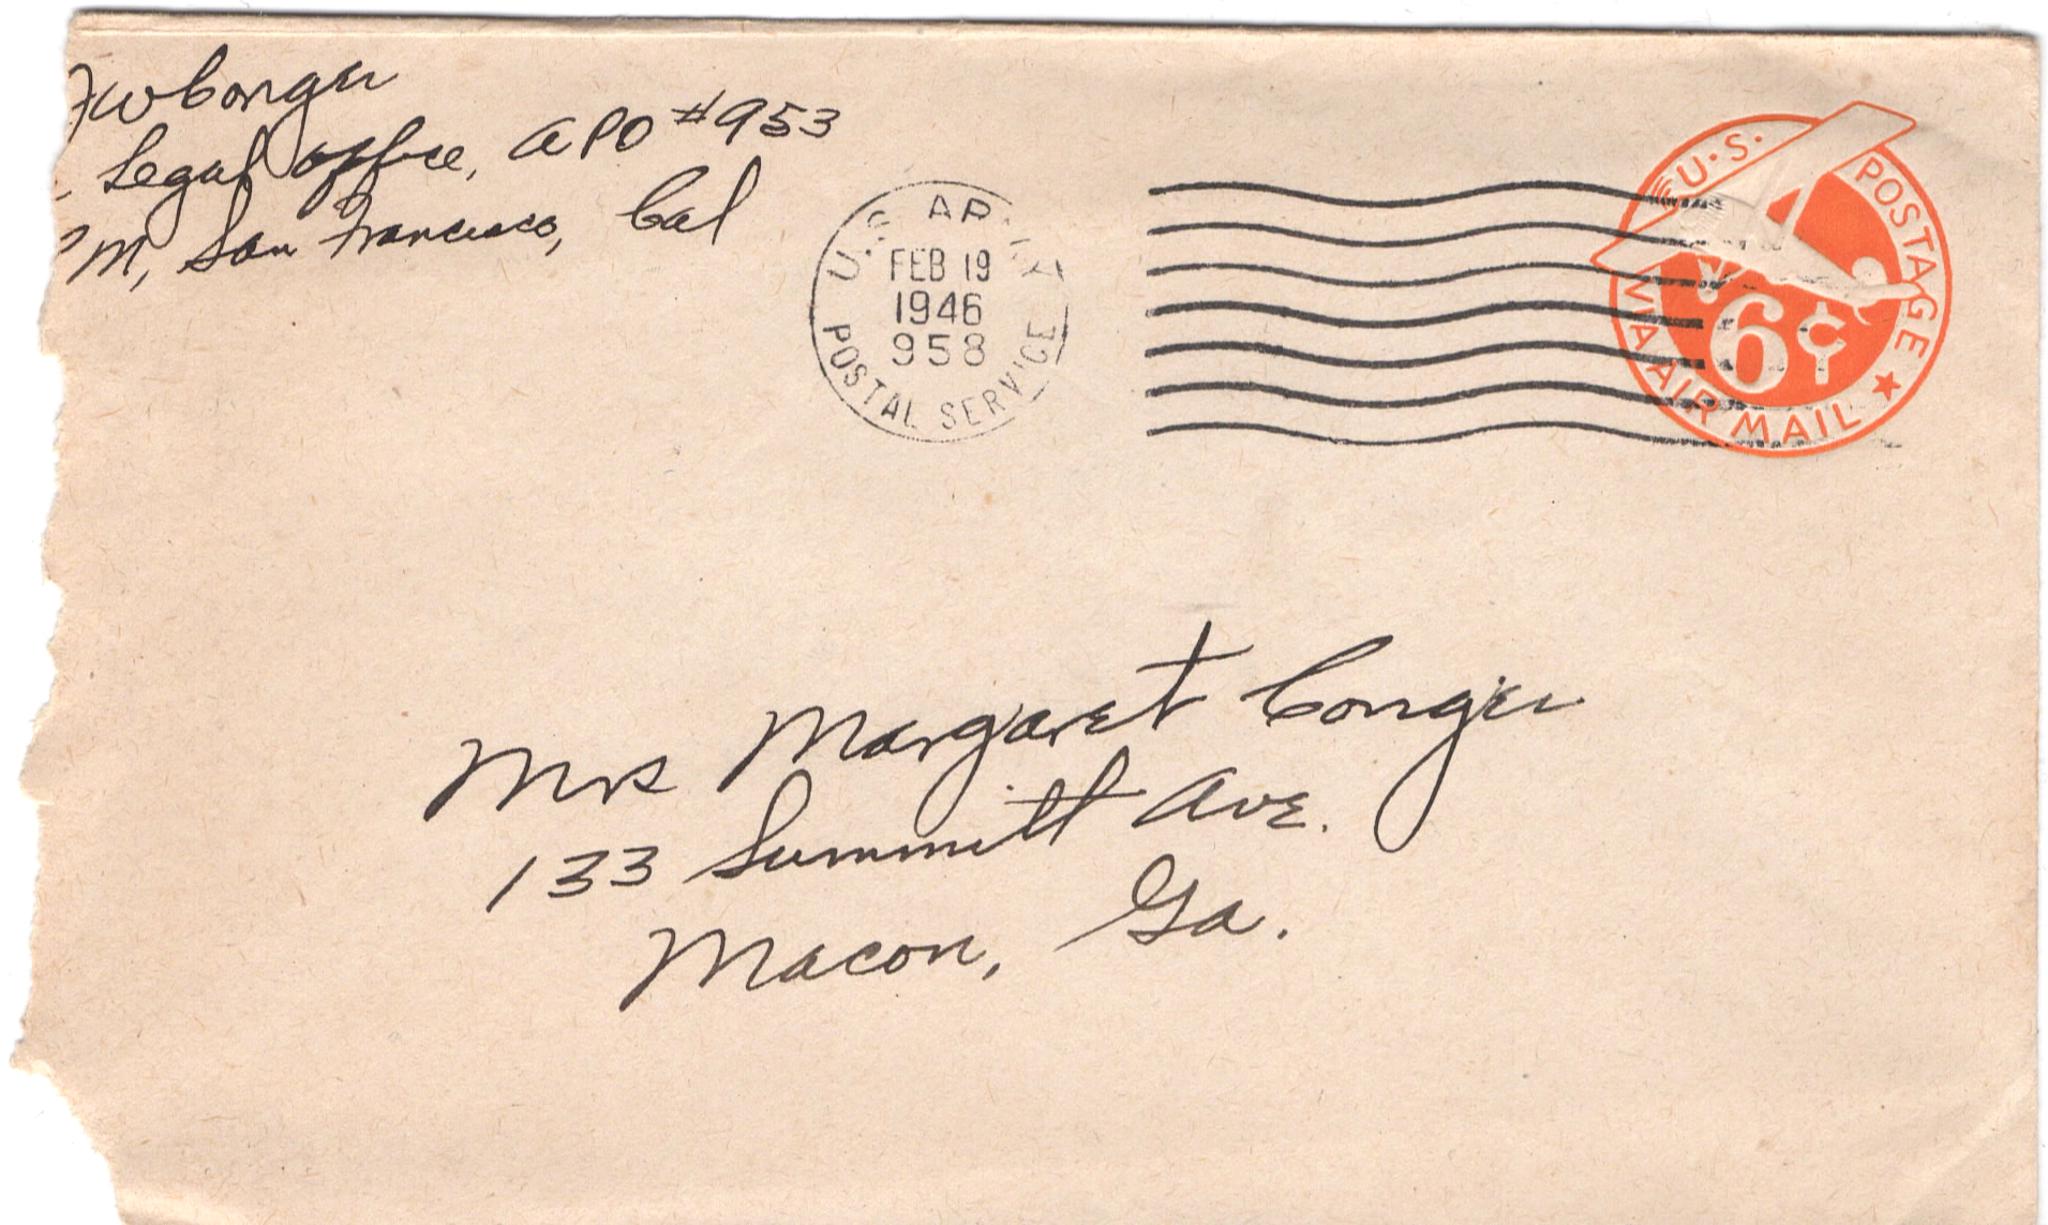 FW Conger
Legal Office, APO #953
PM, San Francisco, Cal
U.S. ARMY
FEB 19
1946
958
POSTAL SERVICE
U.S. POSTAGE
6¢
VIA AIR MAIL
Mrs Margaret Conger
133 Summitt Ave.
Macon, Ga.